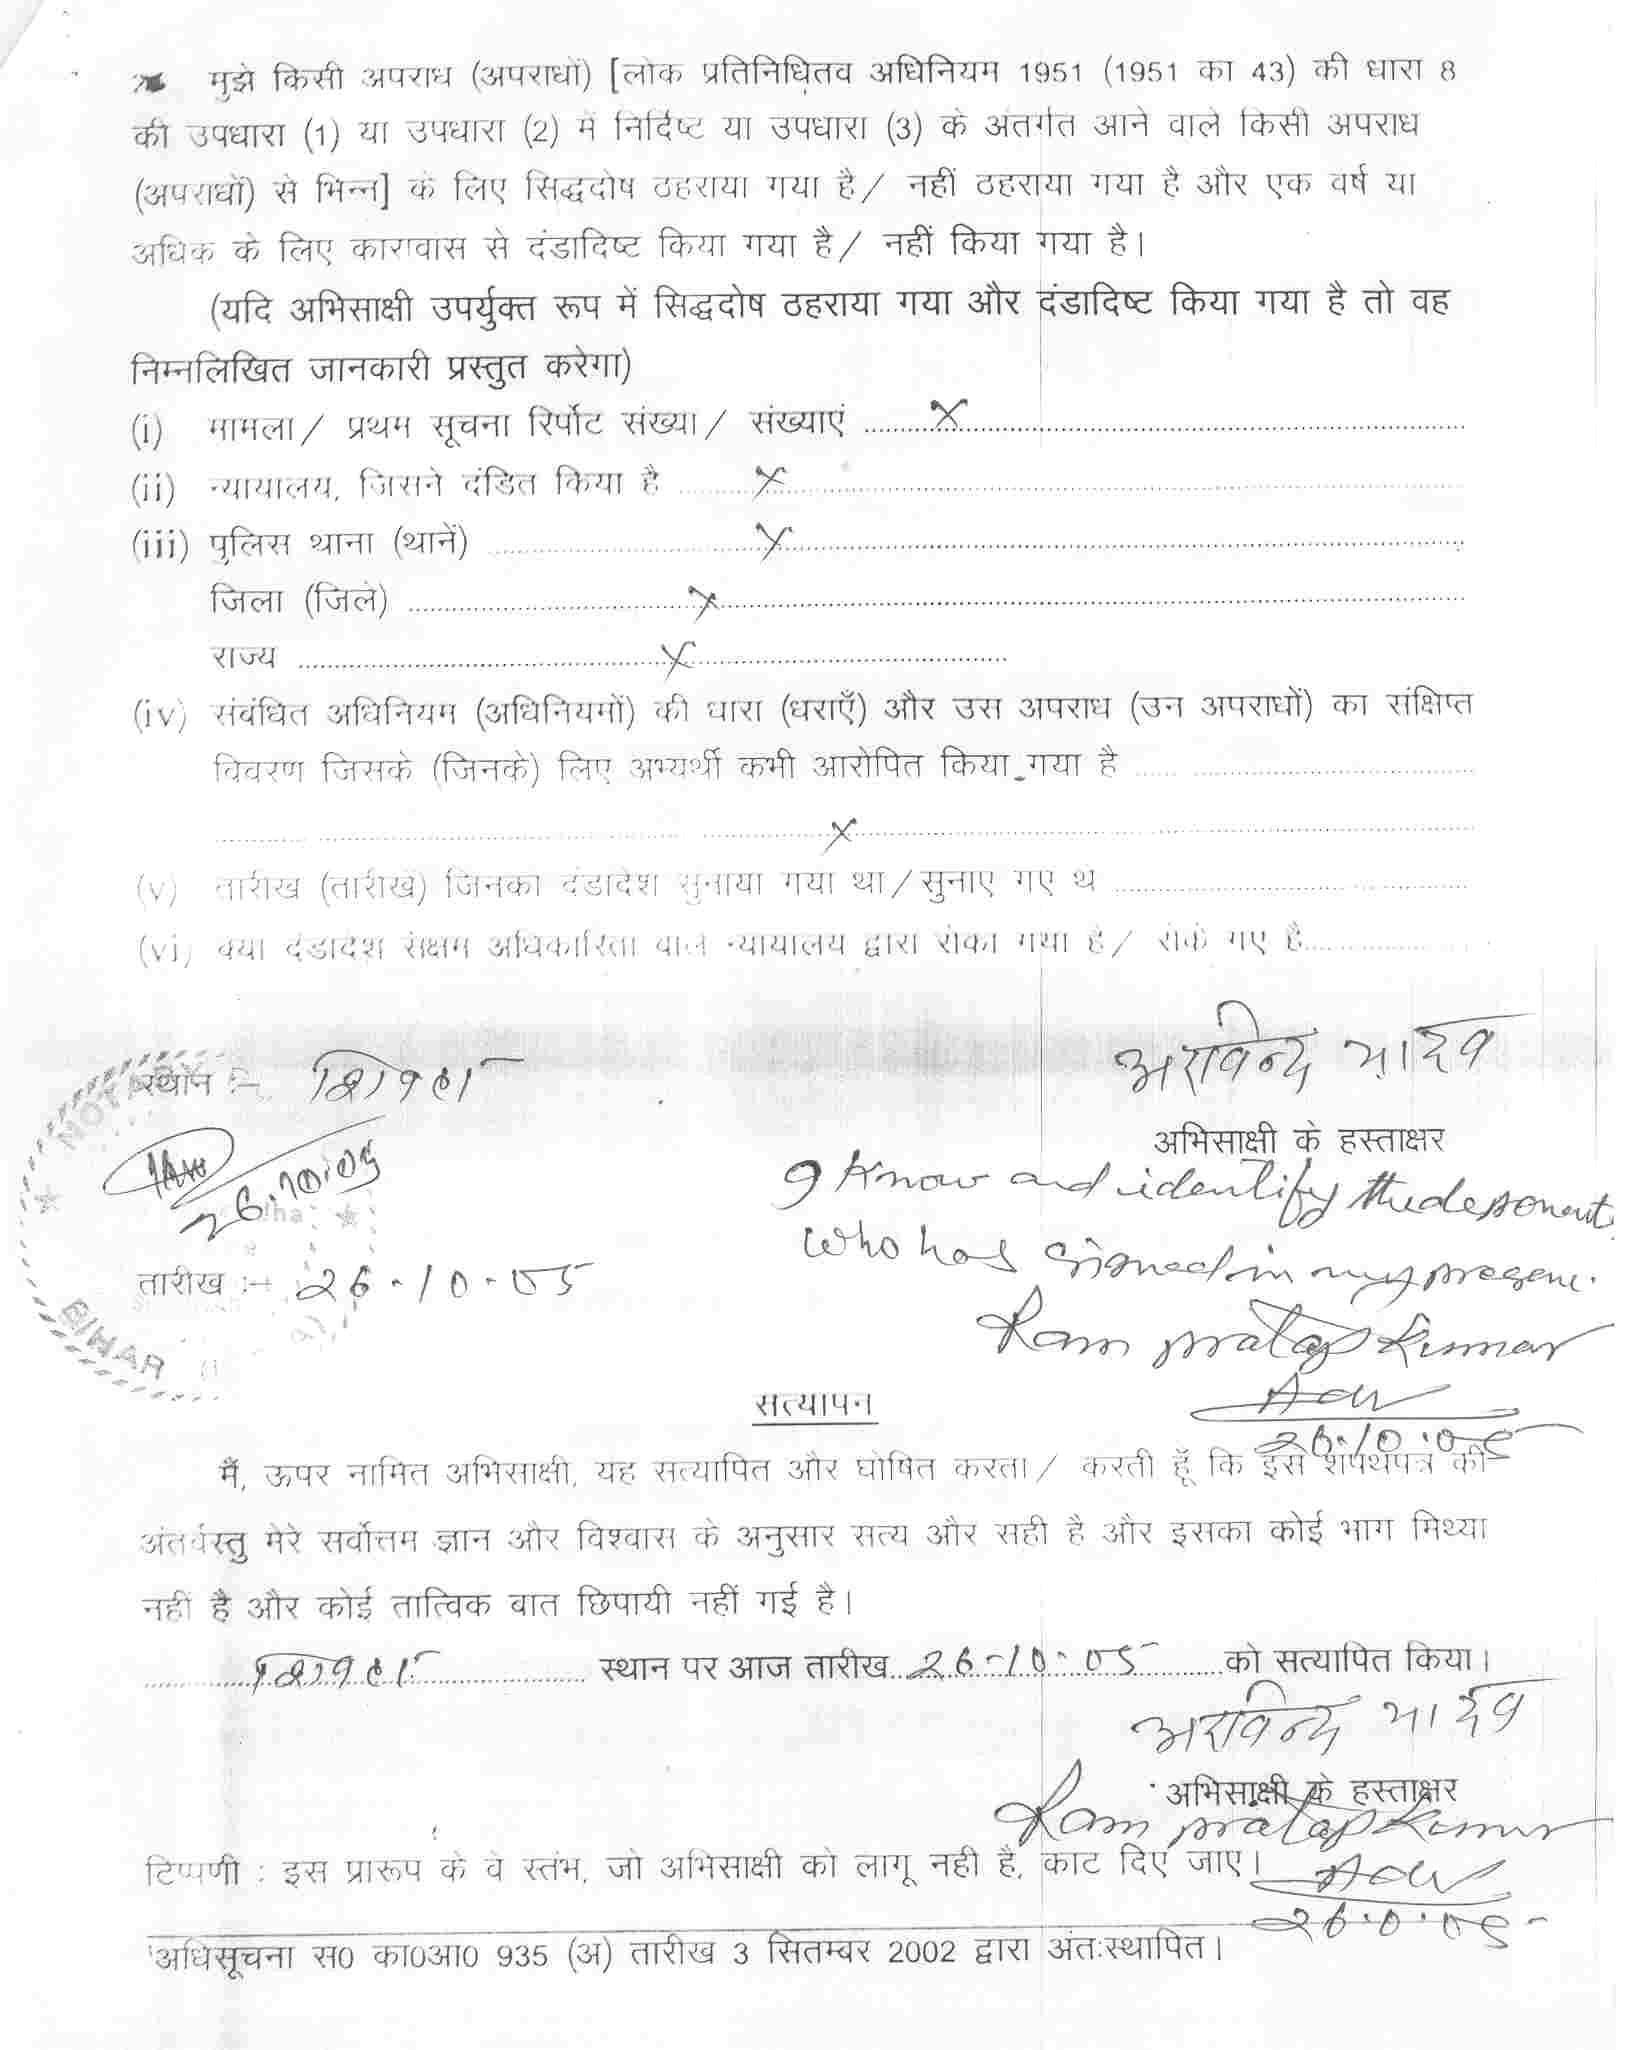 मुझे किसी अपराध (अपराधों) [लोक प्रतिनिधितव अधिनियम 1951 (1951 का 43) की धारा 8
की उपधारा (1) या उपधारा (2) में निर्दिष्ट या उपधारा (3) के अंतर्गत आने वाले किसी अपराध
(अपराधों) से भिन्न] के लिए सिद्धदोष ठहराया गया है/ नहीं ठहराया गया है और एक वर्ष या
अधिक के लिए कारावास से दंडादिष्ट किया गया है/ नहीं किया गया है।
(यदि अभिसाक्षी उपर्युक्त रूप में सिद्धदोष ठहराया गया और दंडादिष्ट किया गया है तो वह
निम्नलिखित जानकारी प्रस्तुत करेगा)
(i) मामला/ प्रथम सूचना रिर्पोट संख्या/ संख्याएं ........ X ........
(ii) न्यायालय, जिसने दंडित किया है ........ X ........
(iii) पुलिस थाना (थानें) ........ X ........
जिला (जिले) ........ X ........
राज्य ........ X ........
(iv) संबंधित अधिनियम (अधिनियमों) की धारा (धराएँ) और उस अपराध (उन अपराधों) का संक्षिप्त
विवरण जिसके (जिनके) लिए अभ्यर्थी कभी आरोपित किया गया है ........
........ X ........
(v) तारीख (तारीखें) जिनका दंडादेश सुनाया गया था/सुनाए गए थे ........
(vi) क्या दंडादेश सक्षम अधिकारिता वाले न्यायालय द्वारा रोका गया है/ रोके गए है........
अरविन्द यादव
स्थान :-
NOTARY
अभिसाक्षी के हस्ताक्षर
26.10.05
I know and identify the deponent
who has signed in my presence.
तारीख :- 26-10-05
Ram Pratap Kumar
BIHAR
Adv
26.10.05
सत्यापन
मैं, ऊपर नामित अभिसाक्षी, यह सत्यापित और घोषित करता/ करती हूँ कि इस शपथपत्र की
अंतर्वस्तु मेरे सर्वोत्तम ज्ञान और विश्वास के अनुसार सत्य और सही है और इसका कोई भाग मिथ्या
नहीं है और कोई तात्विक बात छिपायी नहीं गई है।
........ स्थान पर आज तारीख 26-10-05 ........को सत्यापित किया।
अरविन्द यादव
अभिसाक्षी के हस्ताक्षर
Ram Pratap Kumar
टिप्पणी : इस प्रारूप के वे स्तंभ, जो अभिसाक्षी को लागू नही है, काट दिए जाए।
Adv
अधिसूचना स0 का0आ0 935 (अ) तारीख 3 सितम्बर 2002 द्वारा अंतःस्थापित।